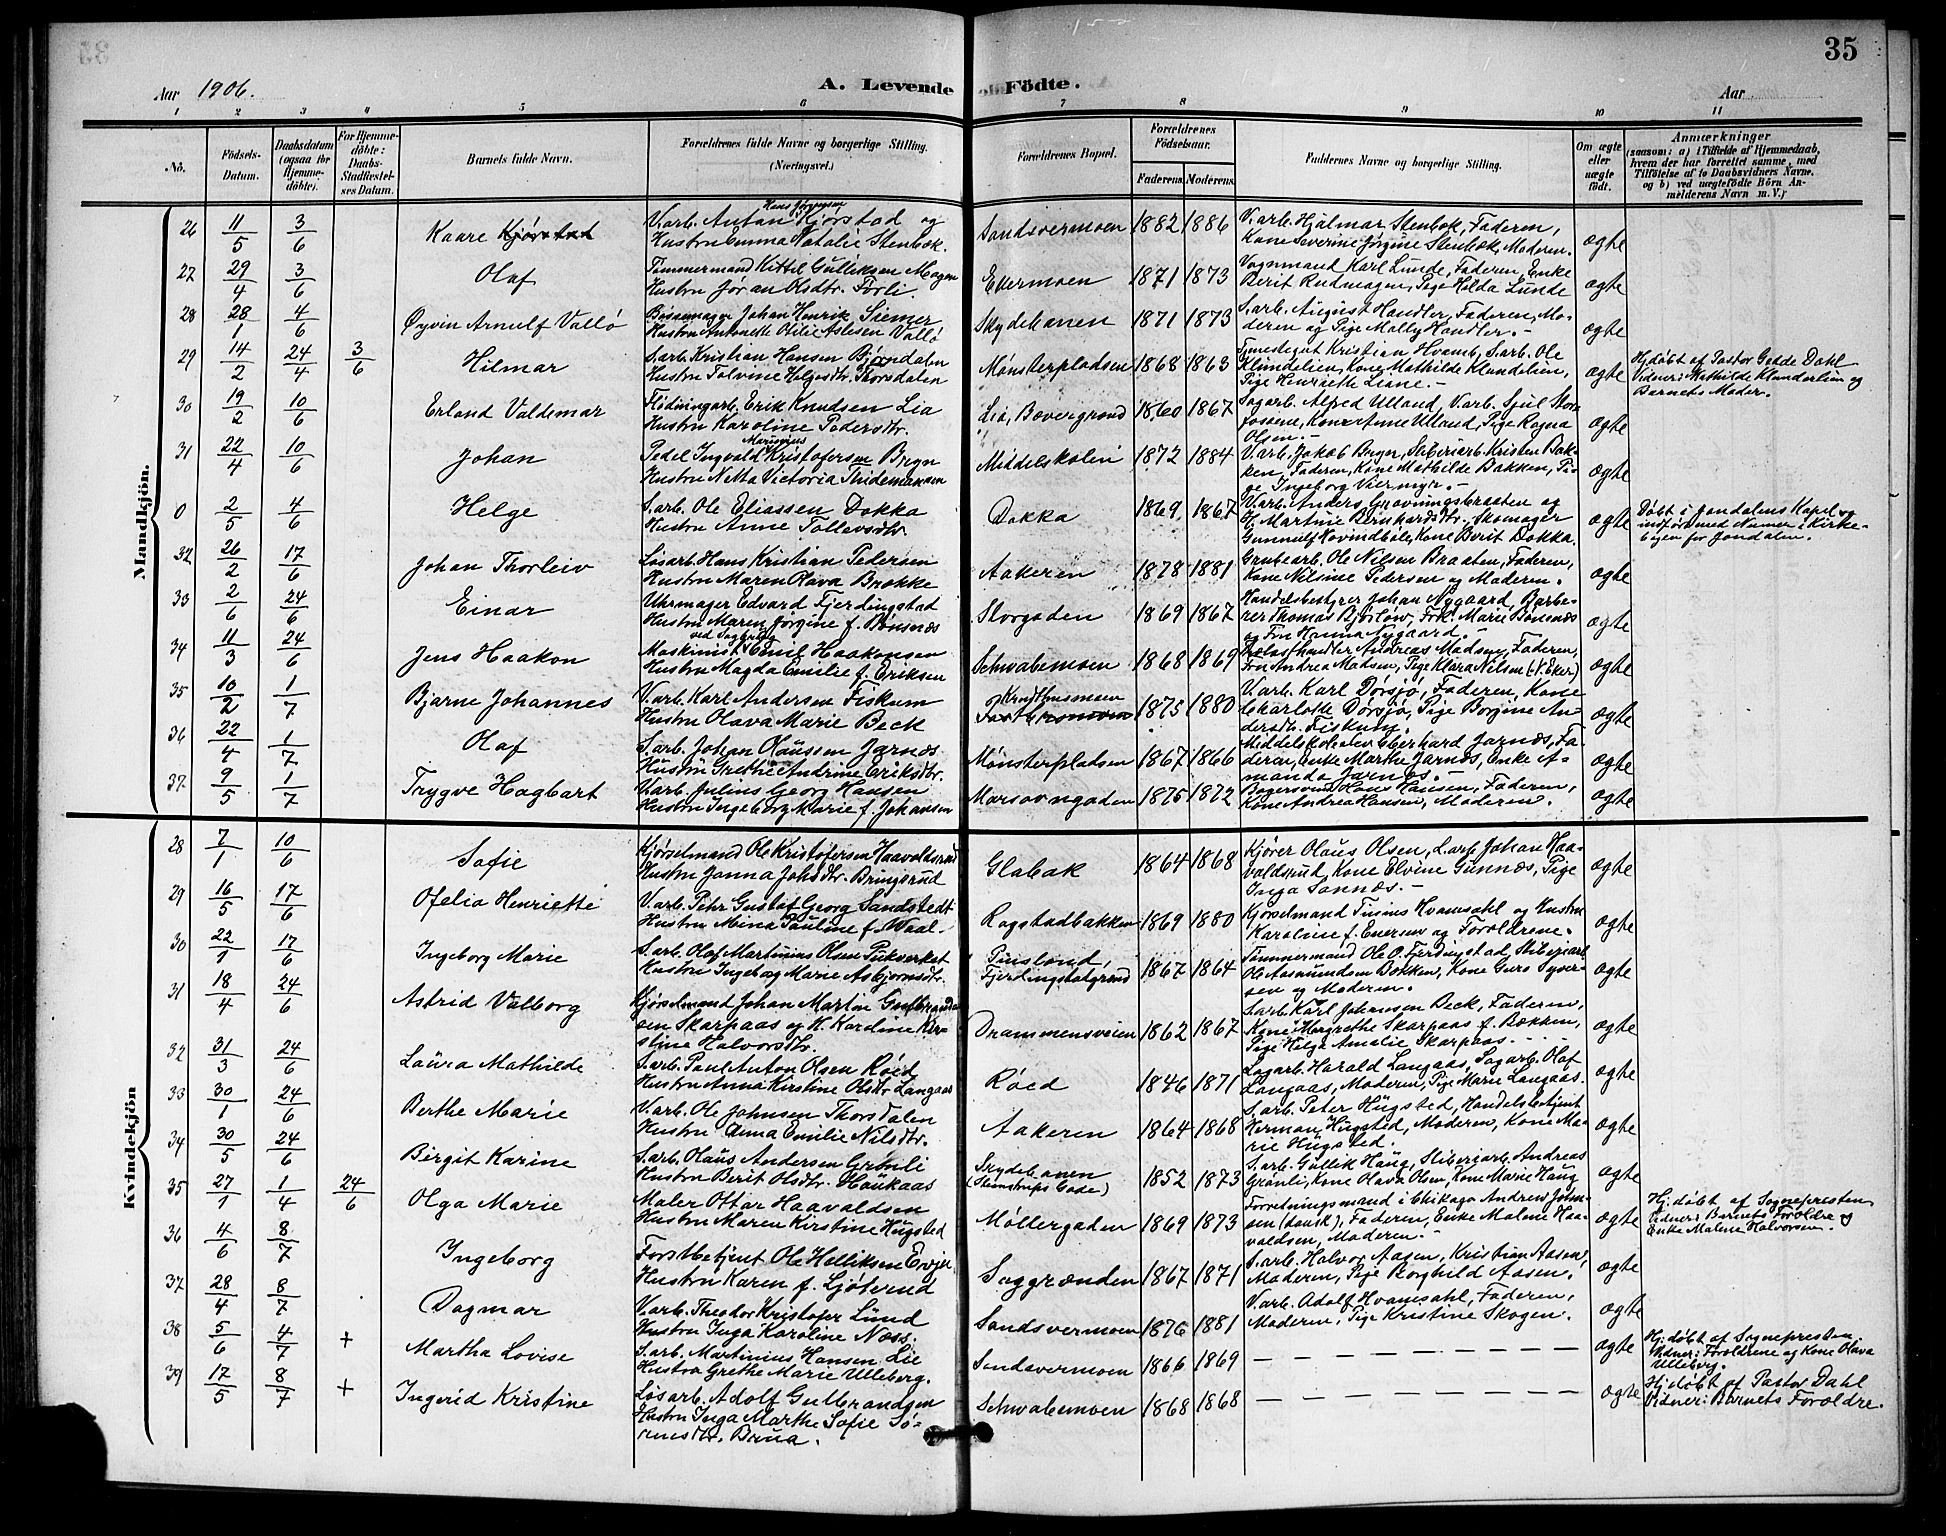 35
Aar 1906.
A. Levende Födte.
Aar
1 2 3 4 5 6 7 8 9 10 11
No.
Födsels-Datum.
Daabsdatum (ogsaa for Hjemme-döbte).
For Hjemme-döbte: Daabs-Stadfæstel-ses Datum.
Barnets fulde Navn.
Forældrenes fulde Navne og borgerlige Stilling. (Næringsvei.)
Forældrenes Bopæl.
Forældrenes Födselsaar.
Faderens. Moderens.
Faddernes Navne og borgerlige Stilling.
Om ægte eller uægte födt.
Anmærkninger
(saasom: a) i Tilfælde af Hjemmedaab, hvem der har forrettet samme, med Tilföielse af to Daabsvidners Navne, og b) ved uægtefödte Börn An-melderens Navn m. V.)
Mandkjön.
26 11/5 3/6 Kaare Kjørstad
V.arb. Anton Hans Jørgensen Kjørstad og
Hustru Emma Natalie Stenbok.
Sandsvermoen 1882 1886
V.arb. Hjalmar Stenbok, Faderen,
Kone Severine Jørgine Stenbok, Moderen.
ægte
27 29/4 3/6 Olaf
Tømmermand Kittil Gulliksen Mogen
Hustru Jøran Olsdtr. Forli.
Ekermoen 1871 1873
Vognmand Karl Lunde, Faderen, Enke
Berit Rudmogen, Pige Hilda Lunde
ægte
28 28/1 4/6 Øyvin Arnulf Vallø
Bøssemager Johan Henrik Siemer
Hustru Antonette Otilie Aslesen Vallø
Skydebanen 1871 1873
S.arb. August Handler, Faderen, Mo-
deren og Pige Molly Handler. -
ægte
29 14/2 24/4 3/6 Hilmar
S.arb. Kristian Hansen Bjørndalen
Hustru Tolvine Helgesdtr. Thorsdalen
Mønsterpladsen 1868 1863
Tjenestegut Kristian Hvamb, S.arb. Ole
Klundelien, Kone Mathilde Klundelien,
Pige Henriette Liane. -
ægte
Hj.døbt af Pastor Gedde Dahl
Vidner: Mathilde Klunderlien og
Barnets Moder.
30 19/2 10/6 Erland Valdemar
Flødningarb. Erik Knudsen Lia
Hustru Karoline Pedersdtr.
Lia, Bævergrend 1860 1867
Sagarb. Alfred Ulland, V.arb. Sjul Stor-
fossene, Kone Anne Ulland, Pige Ragna
Olsen. -
ægte
31 22/4 10/6 Johan
Pedel Ingvald Marinius Kristofersen Bryn
Hustru Netta Victoria Thidemansen
Middelskolen 1872 1884
V.arb. Jakob Bryn, Sliberiarb. Kristen Bak-
ken, Faderen, Kone Mathilde Bakken, Pi-
ge Ingeborg Viermyr. -
ægte
0 2/5 4/6 Helge
S.arb. Ole Eliassen Dokka
Hustru Anne Tollevsdtr.
Dokka 1869 1867
V.arb. Anders Gravningsbraaten og
H. Martine Bernhardsdtr. Skomager
Gunnulf Hovindbøle, Kone Berit Dokka.
ægte
Døbt i Jondalens Kapel og
indført med Numer i Kirke-
bogen for Jondalen.
32 26/2 17/6 Johan Thorleiv
Løsarb. Hans Kristian Pedersen
Hustru Maren Olava Brække
Aakeren 1878 1881
Grubearb. Ole Nilsen Braaten, Faderen,
Kone Nilsine Pedersen og Moderen.
ægte
33 2/6 24/6 Einar
Uhrmager Edvard Fjerdingstad
Hustru Maren Jørgine f. Bønsnæs
Storgaden 1869 1867
Handelsbestyrer Johan Nygaard, Barbe-
rer Thomas Bjørløw, Frk. Marie Bønsnæs
og Fru Hanna Nygaard. -
ægte
34 11/3 24/6 Jens Haakon
Maskinist ved Sagbrug Emil Haakonsen
Hustru Magda Emilie f. Eriksen
Schwabemoen 1868 1869
Andreas Madsen, Faderen,
Fru Andrea Madsen, Pige Klara Nilsen (N. Eker)
ægte
35 10/2 1/7 Bjarne Johannes
V.arb. Karl Andersen Fiskum
Hustru Olava Marie Beck
Krudthusmoen 1875 1880
V.arb. Karl Dørsjø, Faderen, Kone
Charlotte Dørsjø, Pige Borgine An-
dersdtr. Fiskum.
ægte
36 22/4 1/7 Olaf
S.arb. Johan Olaussen Jarnæs
Hustru Grethe Andrine Eriksdtr.
Mønsterpladsen 1867 1866
Middelskoleelev Eberhard Jarnæs, Fa-
deren, Enke Marthe Jarnæs, Enke A-
manda Jarnæs. -
ægte
37 9/5 1/7 Trygve Hagbart
V.arb. Julius Georg Hansen
Hustru Ingeborg Marie f. Johansen
Marsovngaden 1875 1872
Bagersvend Hans Hansen, Faderen,
Kone Andrea Hansen, Moderen.
ægte
Kvindekjön
28 7/1 10/6 Sofie
Kjørselmand Ole Kristofersen Haavaldsrud
Hustru Janna Johsdtr. Bringsrud
Glabak 1864 1868
Kjører Olaus Olsen, L.arb. Johan Haa-
valdsrud, Kone Elvine Gunnæs, Pige
Inga Sannæs. -
ægte
29 16/5 17/6 Ofelia Henriette
V.arb. Pehr Gustaf Georg Sandstedt
Hustru Mina Pauline f. Waal.
Rogstadbakken 1869 1880
Kjørselmand Tinius Hvamsahl og Hustru
Karoline f. Enersen og Forældrene.
ægte
30 22/1 17/6 Ingeborg Marie
S.arb. Olaf Martinius Olsen Pukverket
Hustru Ingeborg Marie Asbjørnsdtr.
Pinslond, Fjerdingstadgrend 1867 1864
Tømmermand Ole O. Fjerdingstad, Sliberiarb.
Ole Aasmundsen Bækken, Kone Guro Syver-
sen og Moderen.
ægte
31 18/4 24/6 Astrid Valborg
Kjørselmand Johan Martin Gulbrand-
sen Skarpaas og H. Karoline Kir-
stine Halvorsdtr.
Drammensveien 1862 1867
S.arb. Karl Johansen Beck, Faderen,
Kone Margrethe Skarpaas f. Bækken,
Pige Helga Amalie Skarpaas. - -
ægte
32 31/3 24/6 Laura Mathilde
S.arb. Paul Anton Olsen Røed
Hustru Anna Kirstine Olsdtr. Langaas
Røed 1846 1871
Sagarb. Harald Langaas, Sagarb. Olaf
Langaas, Moderen, Pige Marie Langaas.
ægte
33 30/1 24/6 Berthe Marie
V.arb. Ole Johnsen Thorsdalen
Hustru Anna Emilie Nilsdtr.
Aakeren 1864 1868
S.arb. Peter Hügsted, Handelsbetjent
Herman Hügsted, Moderen, Kone Ma-
rie Hügsted.
ægte
34 30/5 24/6 Birgit Karine
S.arb. Olaus Andersen Grønli
Hustru Berit Olsdtr. Haukaas
Skydebanen (Steinstrups Gade) 1852 1873
S.arb. Gullik Haug, Sliberiarb. Andreas
Grønli, Kone Olava Olsen, Kone Marie Haug
ægte
35 27/1 1/4 24/6 Olga Marie
Maler Ottar Haavaldsen
Hustru Maren Kirstine Hügsted
Møllergaden 1869 1873
Forretningsmand i Chikago Andrew John-
sen (dansk), Faderen, Enke Malene Haa-
valdsen, Moderen. -
ægte
Hj.døbt af Sognepresten
Vidner: Barnets Forældre og
Enke Malene Halvorsen.
36 4/6 8/7 Ingeborg
Forstbetjent Ole Helliksen Ervik
Hustru Karen f. Ljøterud
Saggrænden 1867 1871
S.arb. Halvor Aasen, Kristian Aasen,
Moderen, Pige Borghild Aasen.
ægte
37 28/4 8/7 Dagmar
V.arb. Theodor Kristofer Lund
Hustru Inga Karoline Næss.
Sandsvermoen 1876 1881
V.arb. Adolf Hvamsahl, Faderen,
Moderen, Pige Kristine Skogen.
ægte
38 5/6 4/7 + Martha Lovise
S.arb. Martinius Hansen Lie
Hustru Grethe Marie Ulleberg.
Sandsvermoen 1866 1869
— — — — — — — —
ægte
Hj.døbt af Sognepresten.
Vidner: Forældrene og Kone Olava
Ulleberg.
39 17/5 8/7 + Ingerid Kristine
Løsarb. Adolf Gulbrandsen
Hustru Inga Marthe Sofie Sø-
rensdtr. Brua.
Schwabemoen 1868 1868
— — — — — — — —
ægte
Hj.døbt af Pastor Dahl
Vidner: Barnets Forældre.